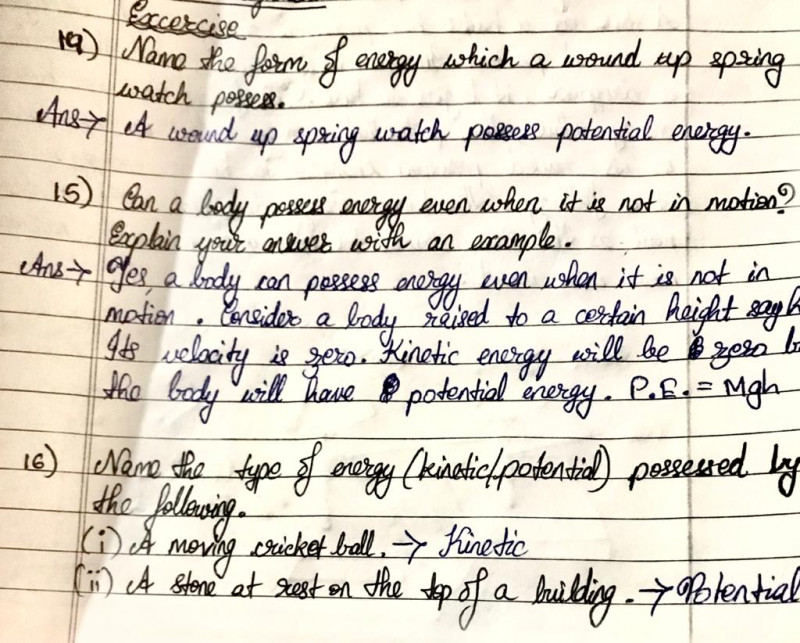 Excercise
14) Name the form of energy which a wound up spring
watch possess.
Ans→ A wound up spring watch possess potential energy.
15) Can a body possess energy even when it is not in motion?
Explain your answer with an example.
Ans→ Yes, a body can possess energy even when it is not in
motion. Consider a body raised to a certain height say h
Its velocity is zero. Kinetic energy will be zero b
the body will have potential energy. P.E. = Mgh
16) Name the type of energy (kinetic/potential) possessed by
the following.
(i) A moving cricket ball. → Kinetic
(ii) A stone at rest on the top of a building. → Potential